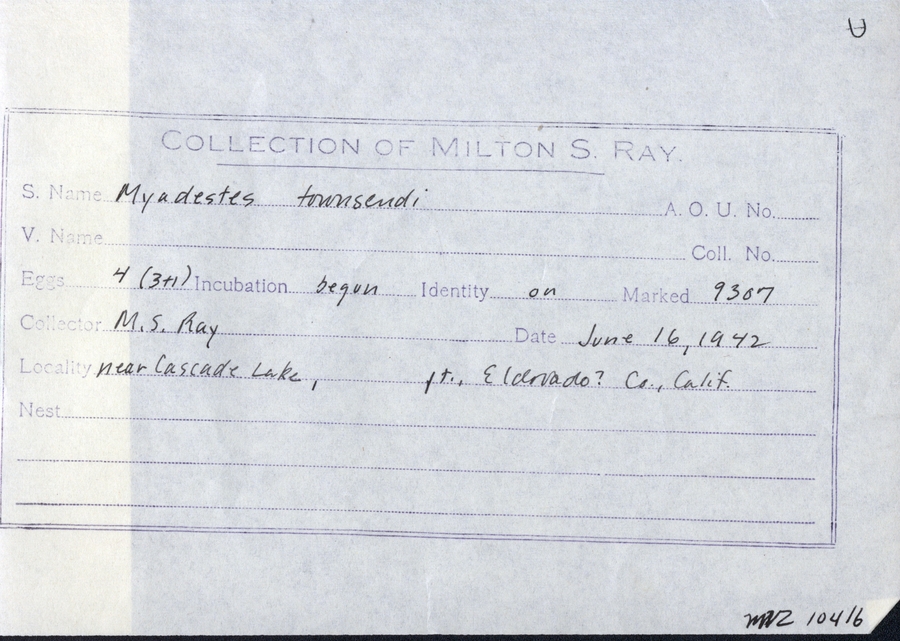 U
COLLECTION OF MILTON S. RAY.
S. Name Myadestes townsendi A. O. U. No.
V. Name Coll. No.
Eggs 4 (3+1) Incubation begun Identity on Marked 9307
Collector M.S. Ray Date June 16, 1942
Locality near Cascade Lake, ft., Eldorado? Co., Calif.
Nest
MVZ 10416